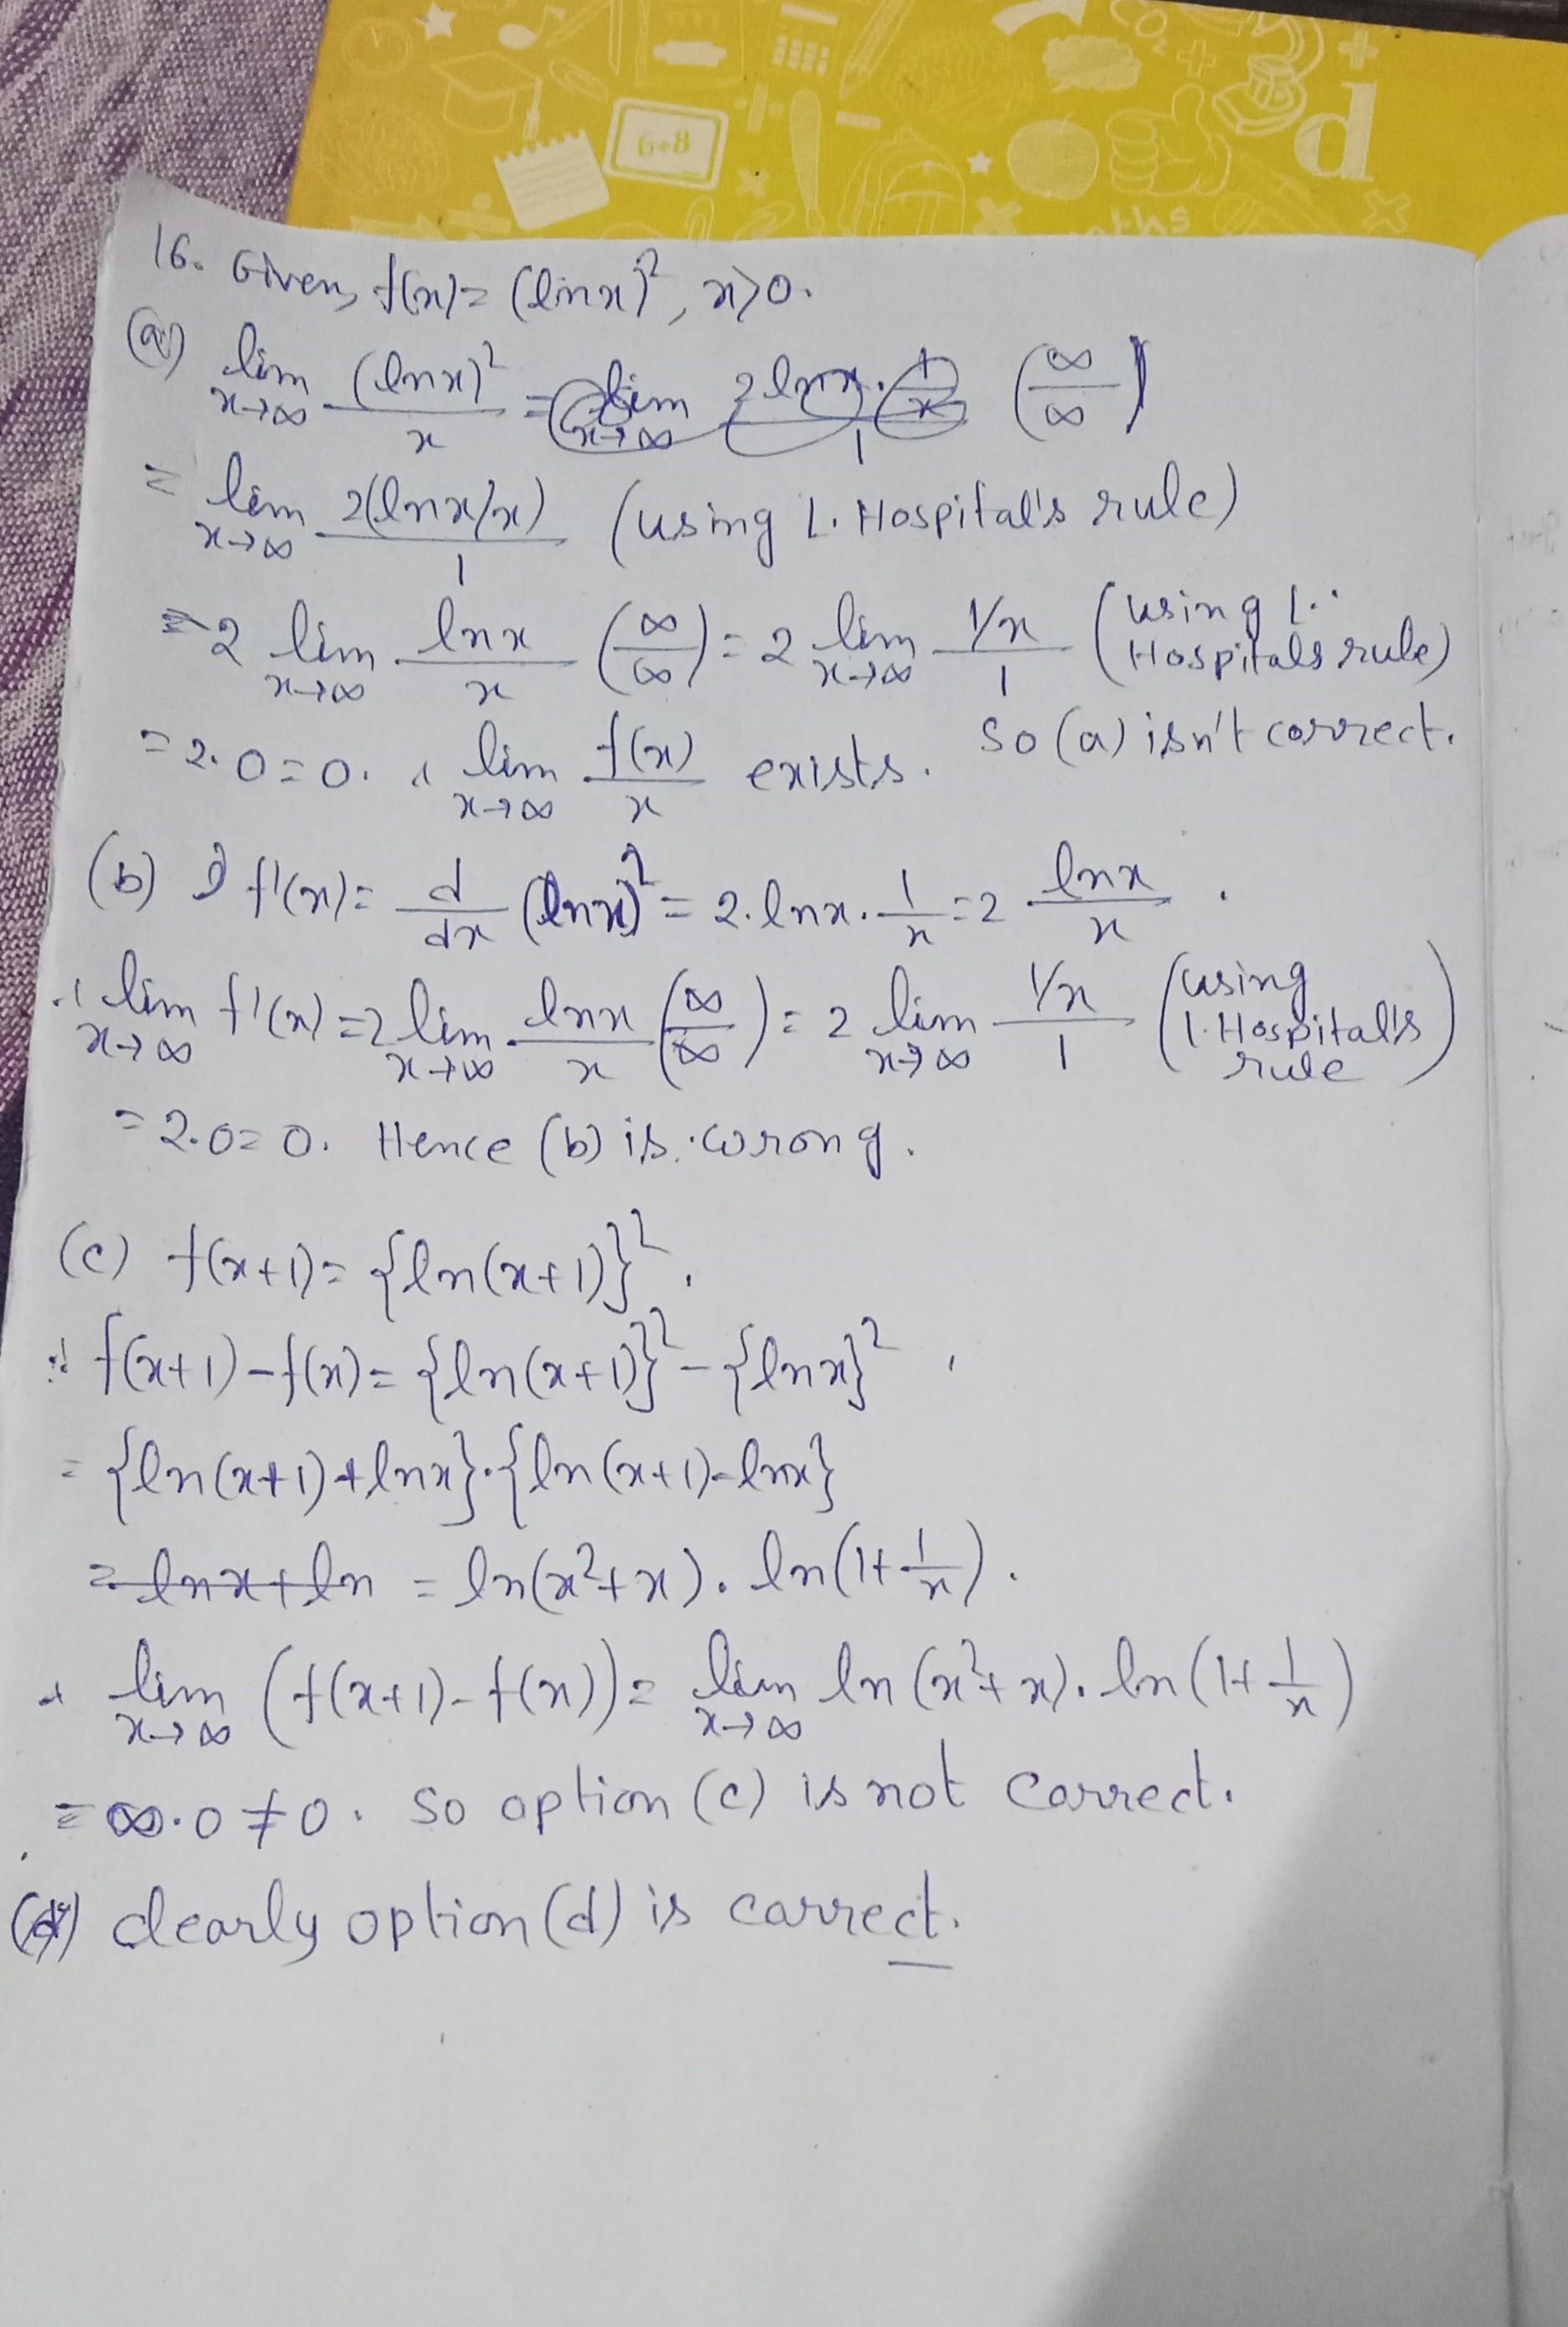 CO₂
6+8
p
16. Given, f(x) = (lnx)², x>0.
(a) lim x→∞ (lnx)²/x = lim x→∞ 2lnx·1/x / 1 (∞/∞)
= lim x→∞ 2(lnx/x)/1 (using L. Hospital's rule)
= 2 lim x→∞ lnx/x (∞/∞) = 2 lim x→∞ 1/x / 1 (using L. Hospitals rule)
= 2.0 = 0. ∴ lim x→∞ f(x)/x exists. So (a) isn't correct.
(b) f'(x) = d/dx (lnx)² = 2.lnx. 1/x = 2 lnx/x .
∴ lim x→∞ f'(x) = 2 lim x→∞ lnx/x (∞/∞) = 2 lim x→∞ 1/x / 1 (using L.Hospital's rule)
= 2.0 = 0. Hence (b) is wrong.
(c) f(x+1) = {ln(x+1)}².
∴ f(x+1) - f(x) = {ln(x+1)}² - {lnx}²
= {ln(x+1)+lnx}.{ln(x+1)-lnx}
= lnx+ln = ln(x²+x). ln(1+1/x).
∴ lim x→∞ (f(x+1)-f(x)) = lim x→∞ ln(x²+x). ln(1+1/x)
= ∞.0 ≠ 0. So option (c) is not correct.
(d) clearly option (d) is correct.